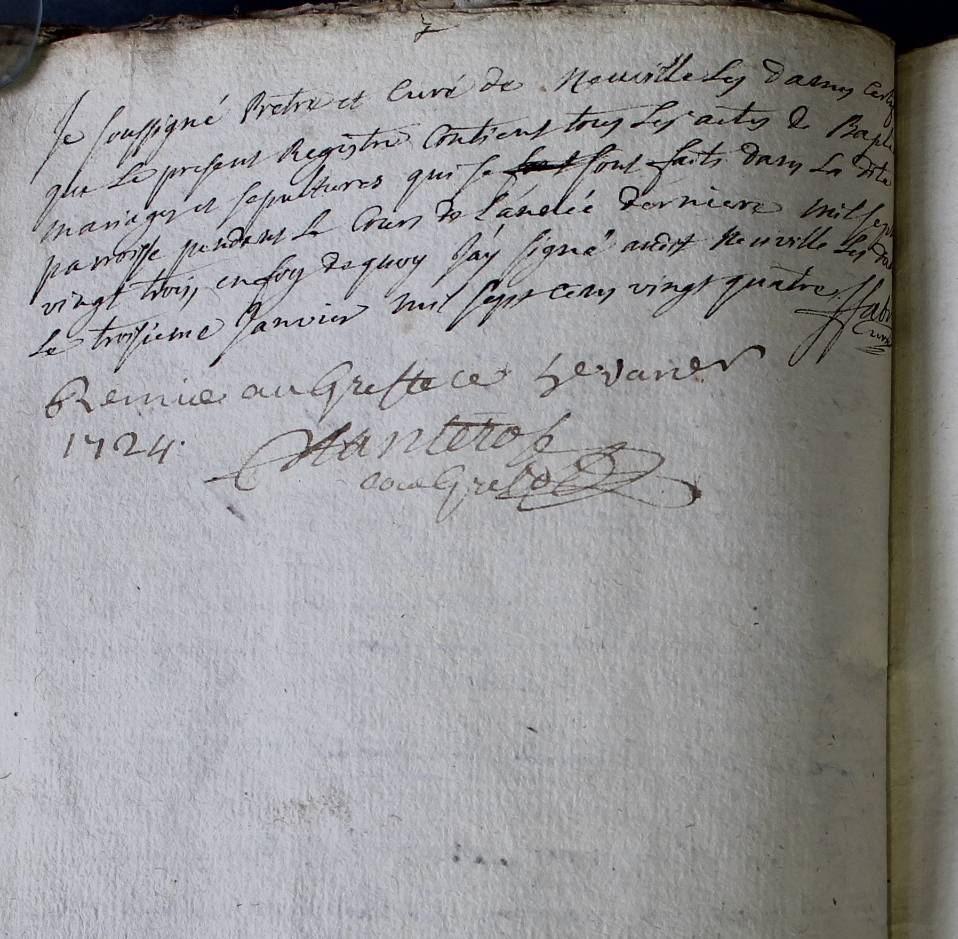 7
Je soussigné Pretre et Curé de Neuville Les dames
que Le present Registre Contient tous Les actes de
mariages et sepultures qui se sont faits dans La dite
parroisse pendant Le Cours de L'année derniere mil sept
vingt trois, en foy de quoy J'ay signé audit Neuville Les
Le troisieme Janvier mil sept cens vingt quatre
Remie au Greffe ce
1724.